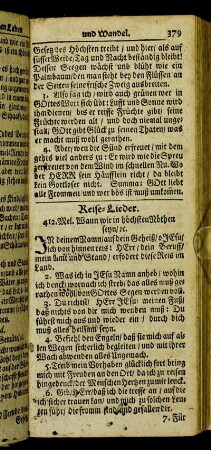 und Wandel. 379
Gesetz des Höchsten treibt / und hier / als auf
süsser Weide / Tag und Nacht beständig bleibt!
Dessen Seegen wächst und blüht wie ein
Palmbaum / den man steht bey den Flüssen an
der Seiten seine frische Zweig ausbreiten.
3. Also sag ich / wird auch grünen wer in
GOttes Wort sich übt: Lufft und Sonne wird
ihm dienen / bis er reiffe Früchte gibt: seine
Früchte werden alt / und doch ungestalt /
GOtt gibt Glück zu seinen Thaten / was
er macht muß wohl gerathen.
4. Aber wen die Sünd erfreuet / mit dem
gehts viel anders zu: Er wird wie die Spreu
zerstreuet von dem Wind im schnellen Nu. Wo
der HERR sein Häuflein richt / da bleibt
kein Gottloser nicht. Summa: GOtt liebt
alle Frommen und wer bös ist muß umkommen.
Reise-Lieder.
412. Mel. Wann wir in höchsten Nöthen
seyn / 2c.
IN deinem Namen / auf dein Geheiß / O JEsu /
ich von hinnen reis: HErr / dein Beruff /
mein Amt und Stand / erfodert diese Reis im
Land.
2. Was ich in JEsu Namn anheb / wohin
ich denck / wornach ich streb / das alles muß
rathen wohl / von GOttes Segen werden voll.
3. Du leitest HERR JEsu / meinen Fuß
daß nichts mich verletzen muß / du führest
mich aus und wieder ein / durch dich
muß alles heilsam seyn.
4. Befiehl den Engeln / daß sie mich auf al-
len Wegen sicherlich begleiten / und mit ihrer
Wach abwenden alles Ungemach.
5. Treib mein Vorhaben glücklich fort bring
mich mit Freuden an den Ort / da ich zu reisen
hingedenck / der Menschen Hertzen zu mir lenck.
6. Gib, HErr / daß ich die ja treffe an / auf die
ich sicher trauen kan / und mich zu solchen Leu-
ten führ / die fromm sind und gefallen dir.
7. Für